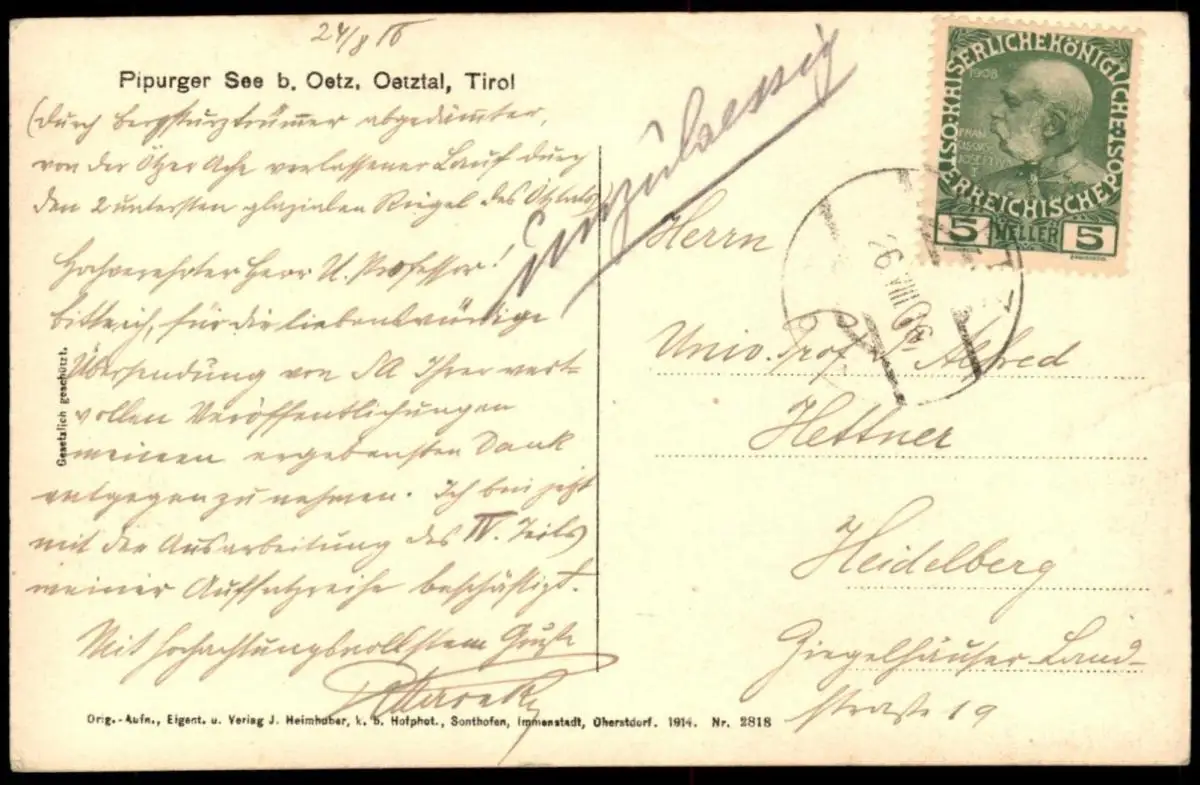 24/8 16
Pipurger See b. Oetz, Oetztal, Tirol
(Durch Bergsturztrümmer abgedämmter,
von der Ötzer Ache verlassener Lauf durch
den 2 untersten glazialen Riegel des Ötztals)
Hochverehrter Herr U. Professor!
Bitte ich, für die liebenswürdige
Übersendung von SA Ihrer wert-
vollen Veröffentlichungen
meinen ergebensten Dank
entgegenzunehmen. Ich bin jetzt
mit der Ausarbeitung des IV. Teils
meiner Aufsatzreihe beschäftigt.
Mit hochachtungsvollstem Gruße
Gesetzlich geschützt.
Orig.-Aufn., Eigent. u. Verlag J. Heimhuber, k. b. Hofphot., Sonthofen, Immenstadt, Oberstdorf. 1914. Nr. 2818
unzulaessig
KAISERLICHE KÖNIGLICHE ÖSTERREICHISCHE POST
1908
5 HELLER 5
Herrn
Univ. Prof. Alfred
Hettner
Heidelberg
Ziegelhäuser Land-
straße 19